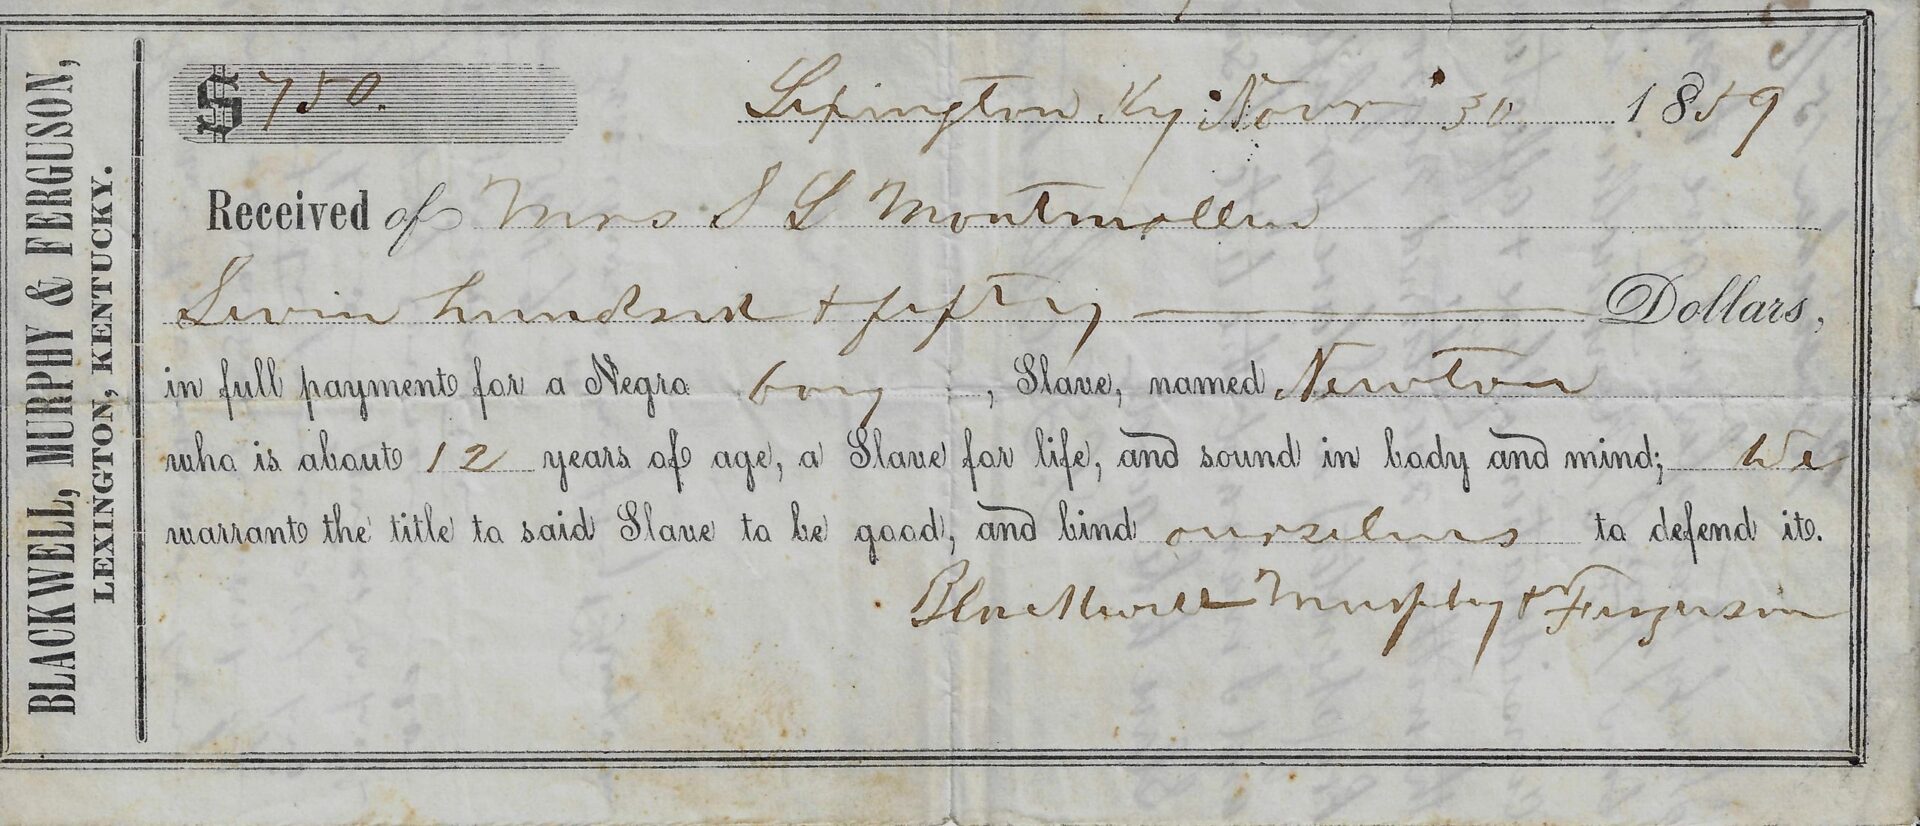 BLACKWELL, MURPHY & FERGUSON,
LEXINGTON, KENTUCKY.
$ 750.
Lexington Ky Novr 30 1859
Received of Mrs S L Montmollin
Seven hundred + fifty Dollars,
in full payment for a Negro boy, Slave, named Newton
who is about 12 years of age, a Slave for life, and sound in body and mind; We
warrant the title to said Slave to be good, and bind ourselves to defend it.
Blackwell Murphy & Ferguson